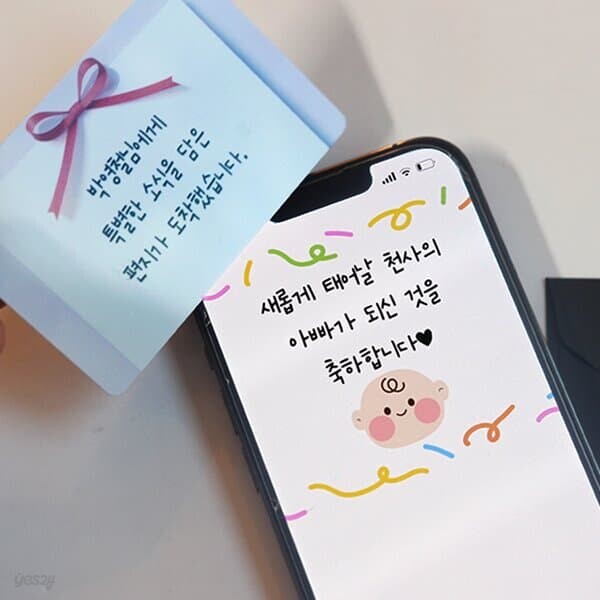 박영철님에게
특별한 소식을 담은
편지가 도착했습니다.
새롭게 태어날 천사의
아빠가 되신 것을
축하합니다♥
yes24